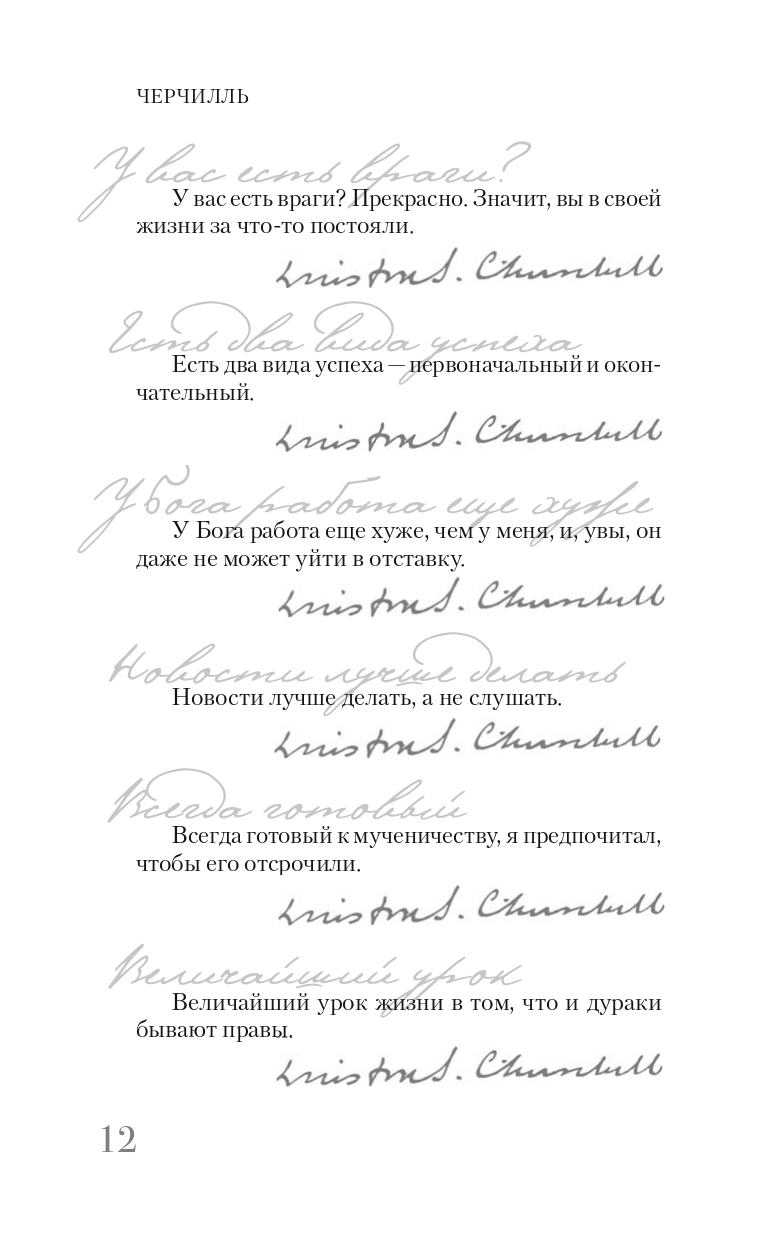 ЧЕРЧИЛЛЬ
У вас есть враги?
У вас есть враги? Прекрасно. Значит, вы в своей
жизни за что-то постояли.
Winston S. Churchill
Есть два вида успеха
Есть два вида успеха — первоначальный и окон-
чательный.
Winston S. Churchill
У Бога работа еще хуже
У Бога работа еще хуже, чем у меня, и, увы, он
даже не может уйти в отставку.
Winston S. Churchill
Новости лучше делать
Новости лучше делать, а не слушать.
Winston S. Churchill
Всегда готовый
Всегда готовый к мученичеству, я предпочитал,
чтобы его отсрочили.
Winston S. Churchill
Величайший урок
Величайший урок жизни в том, что и дураки
бывают правы.
Winston S. Churchill
12